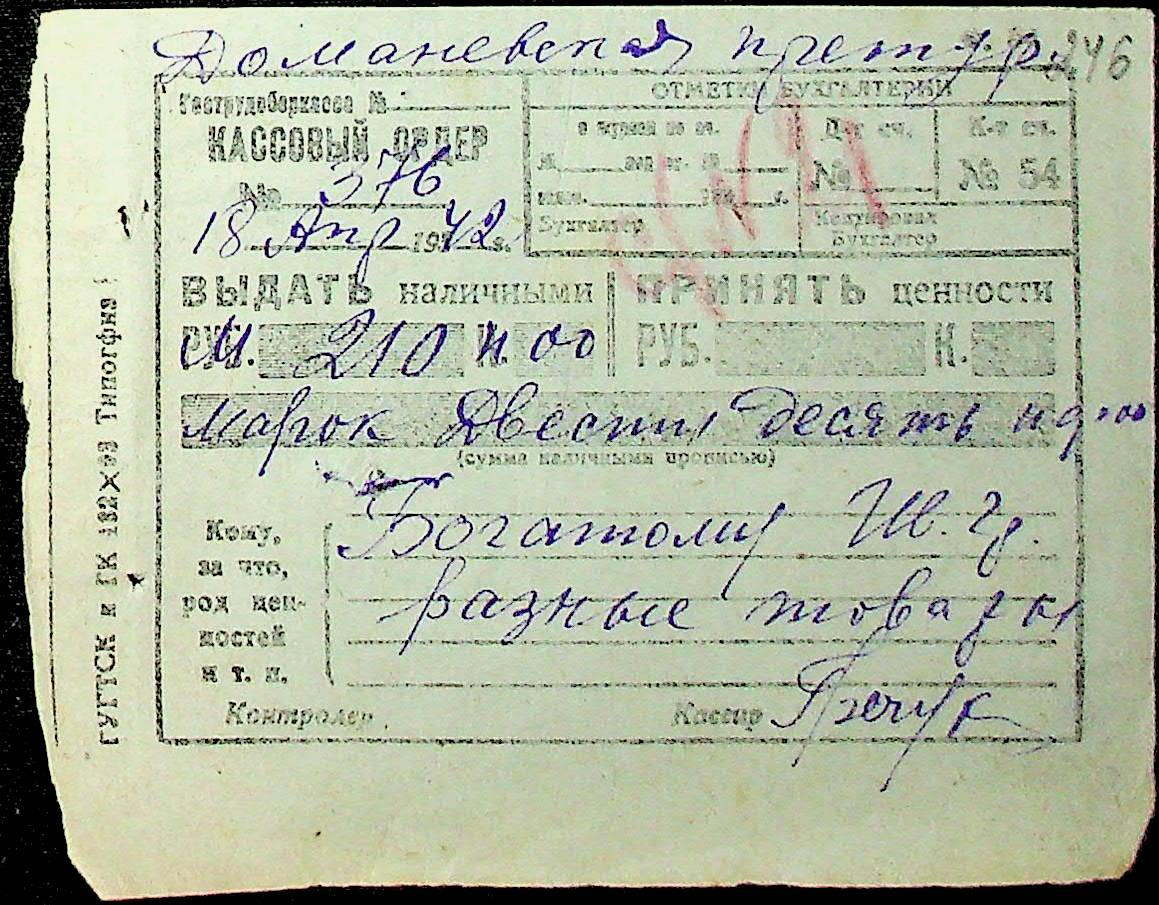 Доманевская претур.
246
Гострудсберкасса №
КАССОВЫЙ ОРДЕР
№ 376
18 Апр 1942 г.
ОТМЕТКИ БУХГАЛТЕРИИ
Д-т сч.
№
К-т сч.
№ 54
Бухгалтер
Контировал
Бухгалтер
ВЫДАТЬ наличными
РУБ. М. 210 п. 00
ПРИНЯТЬ ценности
РУБ. К.
марок Двести десять
(сумма наличными прописью)
Кому,
за что,
род цен-
ностей
и т. п.
Богатому Ш.
разные товары
Контролер
Кассир
ГУГТСК и ГК